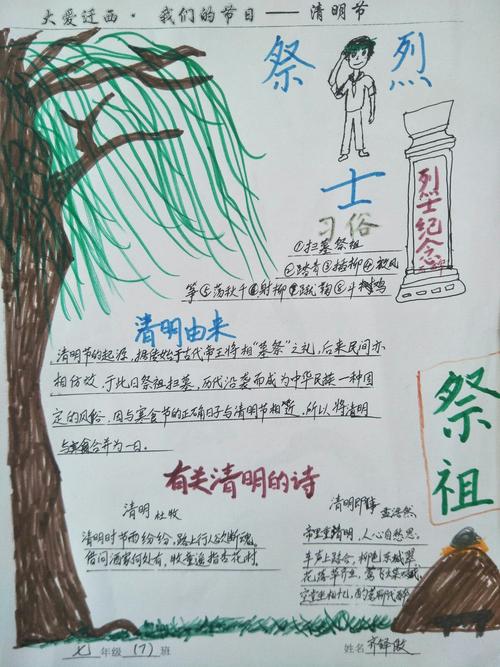 大爱迁西·我们的节日——清明节
祭 烈
士
烈士纪念碑
习俗
①扫墓祭祖
②踏青③插柳④放风
筝⑤荡秋千⑥射柳⑦蹴鞠⑧斗鸡
清明由来
清明节的起源，据传始于古代帝王将相“墓祭”之礼，后来民间亦
相仿效，于此日祭祖扫墓，历代沿袭而成为中华民族一种固
定的风俗，因与寒食节的正确日子与清明节相近，所以将清明
与寒食合并为一日。
祭祖
有关清明的诗
清明 杜牧
清明时节雨纷纷，路上行人欲断魂。
借问酒家何处有，牧童遥指杏花村。
清明即事 孟浩然
帝里重清明，人心自愁思。
车声上路合，柳色东城翠。
花落草齐生，莺飞蝶双戏。
空堂坐相忆，酌茗聊代醉。
七 年级 (7) 班
姓名